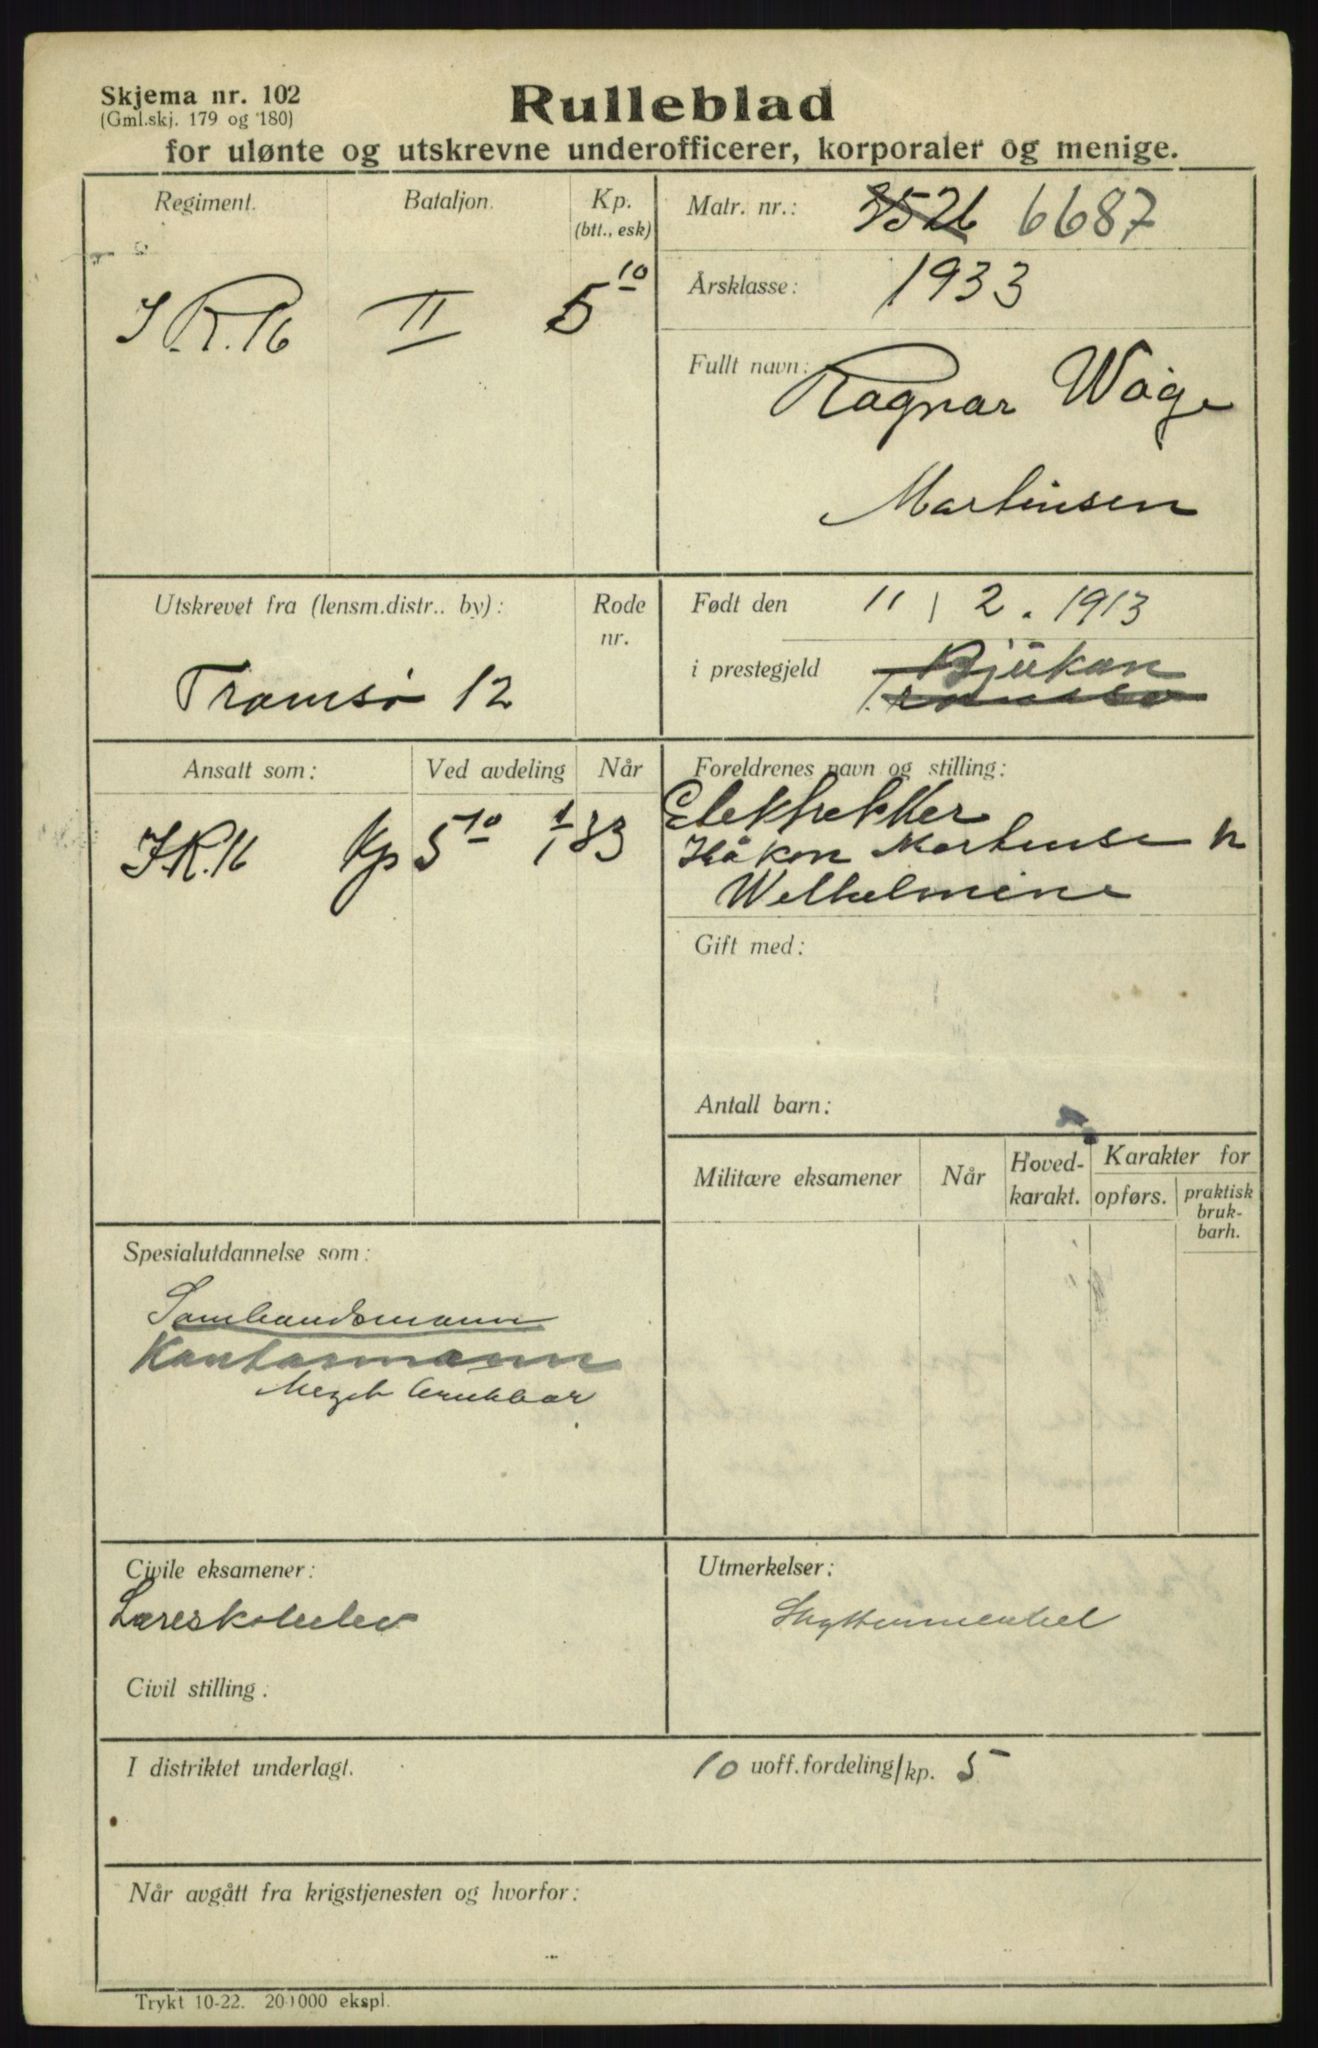 Skjema nr. 102
(Gml.skj. 179 og 180)
Rulleblad
for ulønte og utskrevne underofficerer, korporaler og menige.
Regiment.
Bataljon.
Kp.
(btt., esk)
I.R.16
II
5 10
Matr. nr.: 3526 6687
Årsklasse: 1933
Fullt navn: Ragnar Wåge
Martinsen
Utskrevet fra (lensm.distr.. by):
Rode
nr.
Tromsø 12
Født den 11 / 2 . 1913
i prestegjeld Rjukan
Tromsø
Ansatt som:
Ved avdeling
Når
I.R.16 Kp 5 10 1/1 33
Foreldrenes navn og stilling:
Håkon Martinsen
Wilhelmine
Gift med:
Antall barn:
Militære eksamener
Når
Hoved-
karakt.
Karakter for
opførs.
praktisk
bruk-
barh.
Spesialutdannelse som:
Sambandsmann
Kontormann
Meget brukbar
Civile eksamener:
Læreskoleelev
Civil stilling :
Utmerkelser:
Skyttermerket
I distriktet underlagt.
10 uoff.fordeling/kp. 5
Når avgått fra krigstjenesten og hvorfor:
Trykt 10-22. 20 000 ekspl.